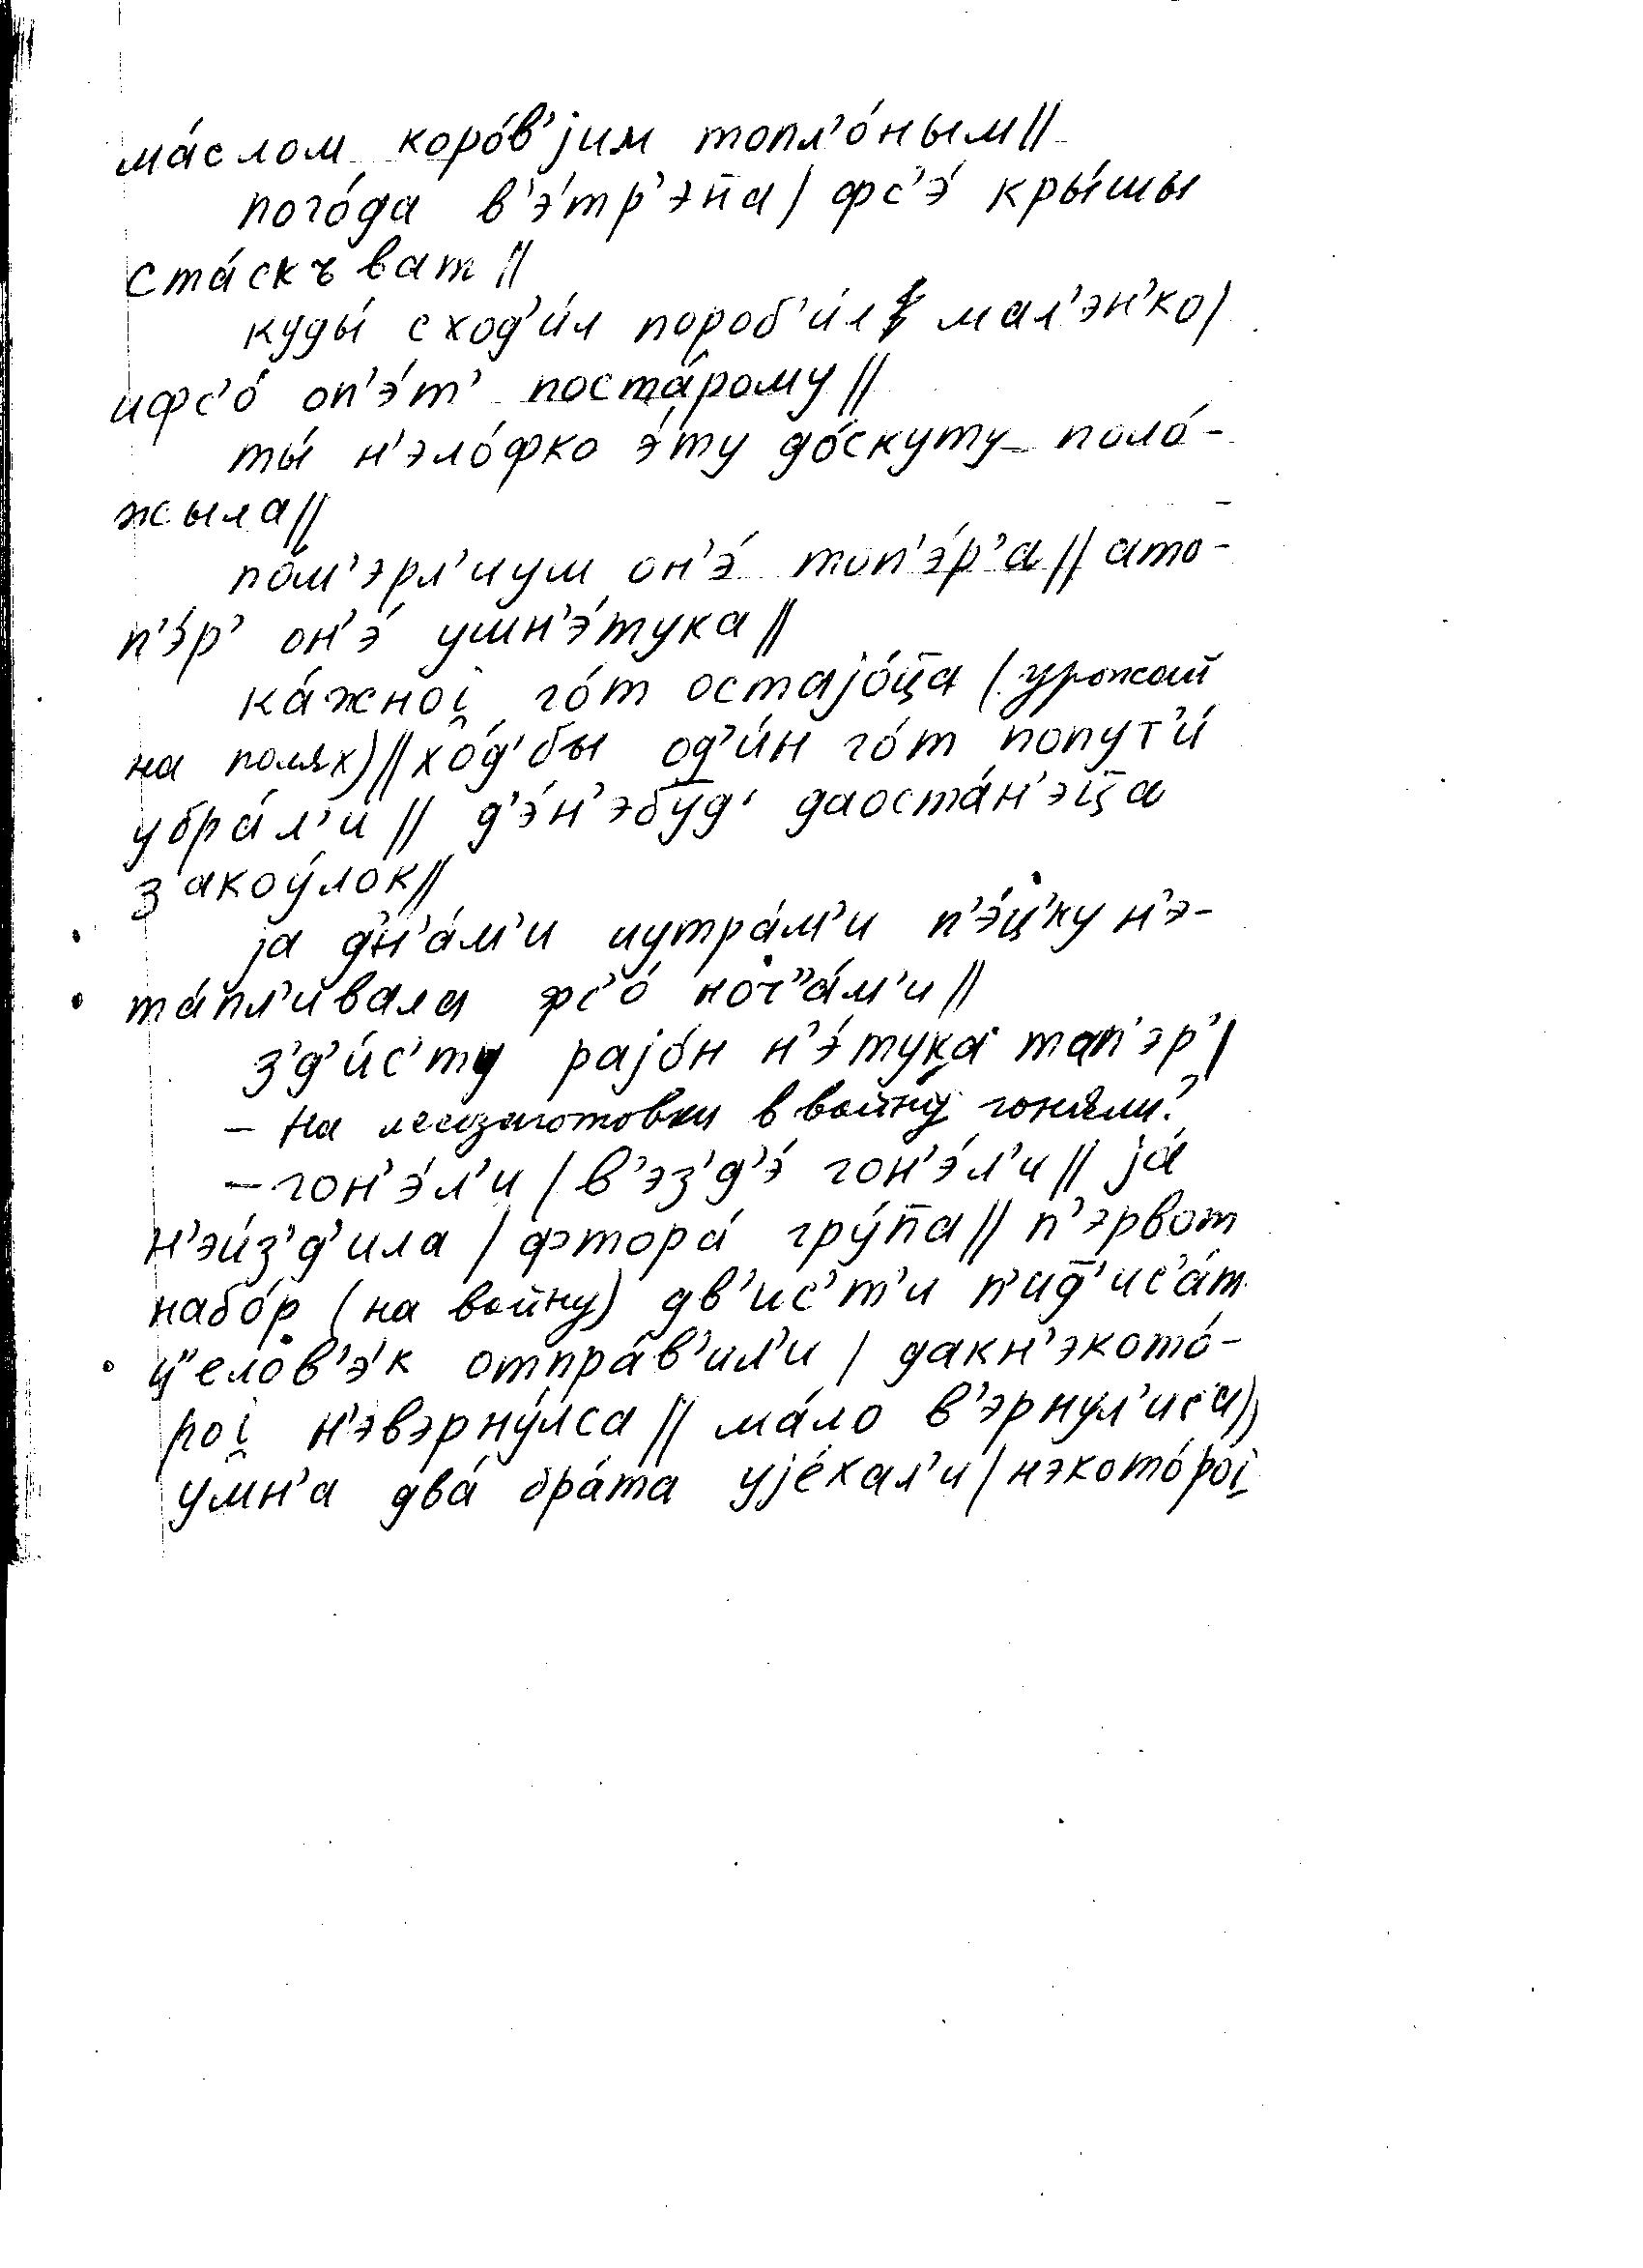 ма́слом коро́в'јим топл'о́ным||
пого́да в'э́тр'эп̄а| фс'э́ кры́шы
ста́скъват||
куды́ сход'и́л пороб'и́л мал'эн'ко|
ифс'о́ оп'э́т' поста́рому||
ты́ н'эло́фко э́ту до́скуту поло́-
жыла||
по́м'эрл'иум он'э́ топ'э́р'а|| ато-
п'э́р' он'э́ умн'э́тука||
ка́жноi̯ го́т остајо́ц̄а (урожай
на полях)|| хо́д'бы од'и́н го́т попут'и́
убра́л'и|| д'э́н'эбуд' даоста́н'эц̄а
закоу́лок||
ја д'н'а́м'и иутра́м'и п'э́ц'ку н'э-
та́пл'ивала фс'о́ ноч"а́м'и||
з'д'и́с'ту рајо́н н'э́тука тап'эр'|
– На лесозаготовки в войну гоняли?
– гон'э́л'и| в'эз'д'э́ гон'э́л'и|| ја́
н'эи́з'д'ила| фтора́ гру́п̄а|| п'эрвот
набо́р (на войну) дв'ис'т'и п'ид̄'ис'а́т
ц"елов'э́к отпра́в'ил'и| дакн'экото́-
роi̯ н'эвэрну́лса|| ма́ло в'эрнул'ис'и||
умн'а два́ бра́та ује́хал'и| нэкото́роi̯